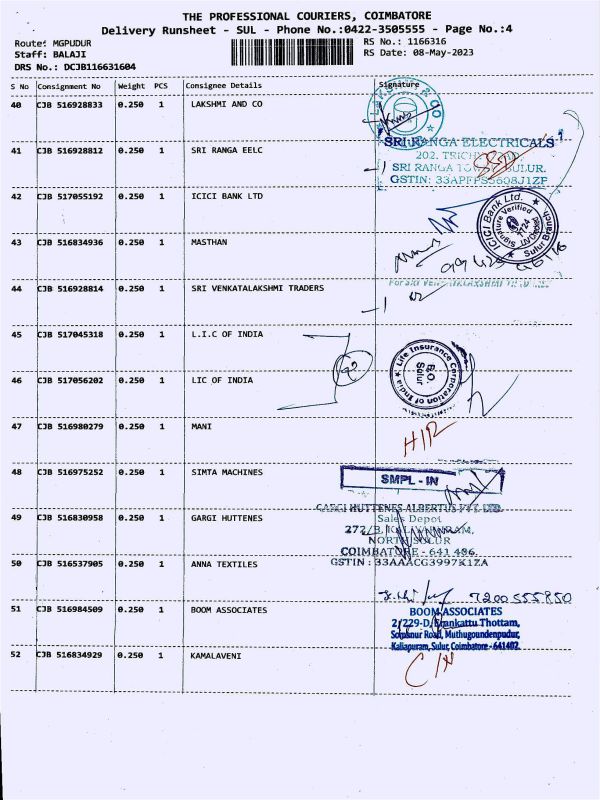 THE PROFESSIONAL COURIERS, COIMBATORE
Delivery Runsheet - SUL - Phone No.:0422-3505555 - Page No.:4
Route: MGPUDUR
RS No.: 1166316
Staff: BALAJI
RS Date: 08-May-2023
DRS No.: DCJB116631604
S No Consignment No Weight PCS Consignee Details Signature
40 CJB 516928833 0.250 1 LAKSHMI AND CO
41 CJB 516928812 0.250 1 SRI RANGA EELC
SRI RANGA ELECTRICALS
202, TRICHY
SRI RANGA SULUR.
GSTIN:
42 CJB 517055192 0.250 1 ICICI BANK LTD
ICICI Bank Ltd.
Signature Verified
Sulur Branch
43 CJB 516834936 0.250 1 MASTHAN
44 CJB 516928814 0.250 1 SRI VENKATALAKSHMI TRADERS
For SRI VENKATALAKSHMI
45 CJB 517045318 0.250 1 L.I.C OF INDIA
Life Insurance Corporation of India
B.O.
Sulur
46 CJB 517056202 0.250 1 LIC OF INDIA
47 CJB 516980279 0.250 1 MANI
48 CJB 516975252 0.250 1 SIMTA MACHINES
SMPL - IN
49 CJB 516830958 0.250 1 GARGI HUTTENES
GARGI HUTTENES ALBERTUS PVT. LTD.
Sales Depot
272/B, KALIYAPURAM,
NORTH SULUR
COIMBATORE - 641 406.
GSTIN : 33AAACG3997K1ZA
50 CJB 516537905 0.250 1 ANNA TEXTILES
7200555850
51 CJB 516984509 0.250 1 BOOM ASSOCIATES
BOOM ASSOCIATES
2/229-D, Thottam,
Road, Muthugoundenpudur,
Kaliapuram, Sulur, Coimbatore - 641402
52 CJB 516834929 0.250 1 KAMALAVENI